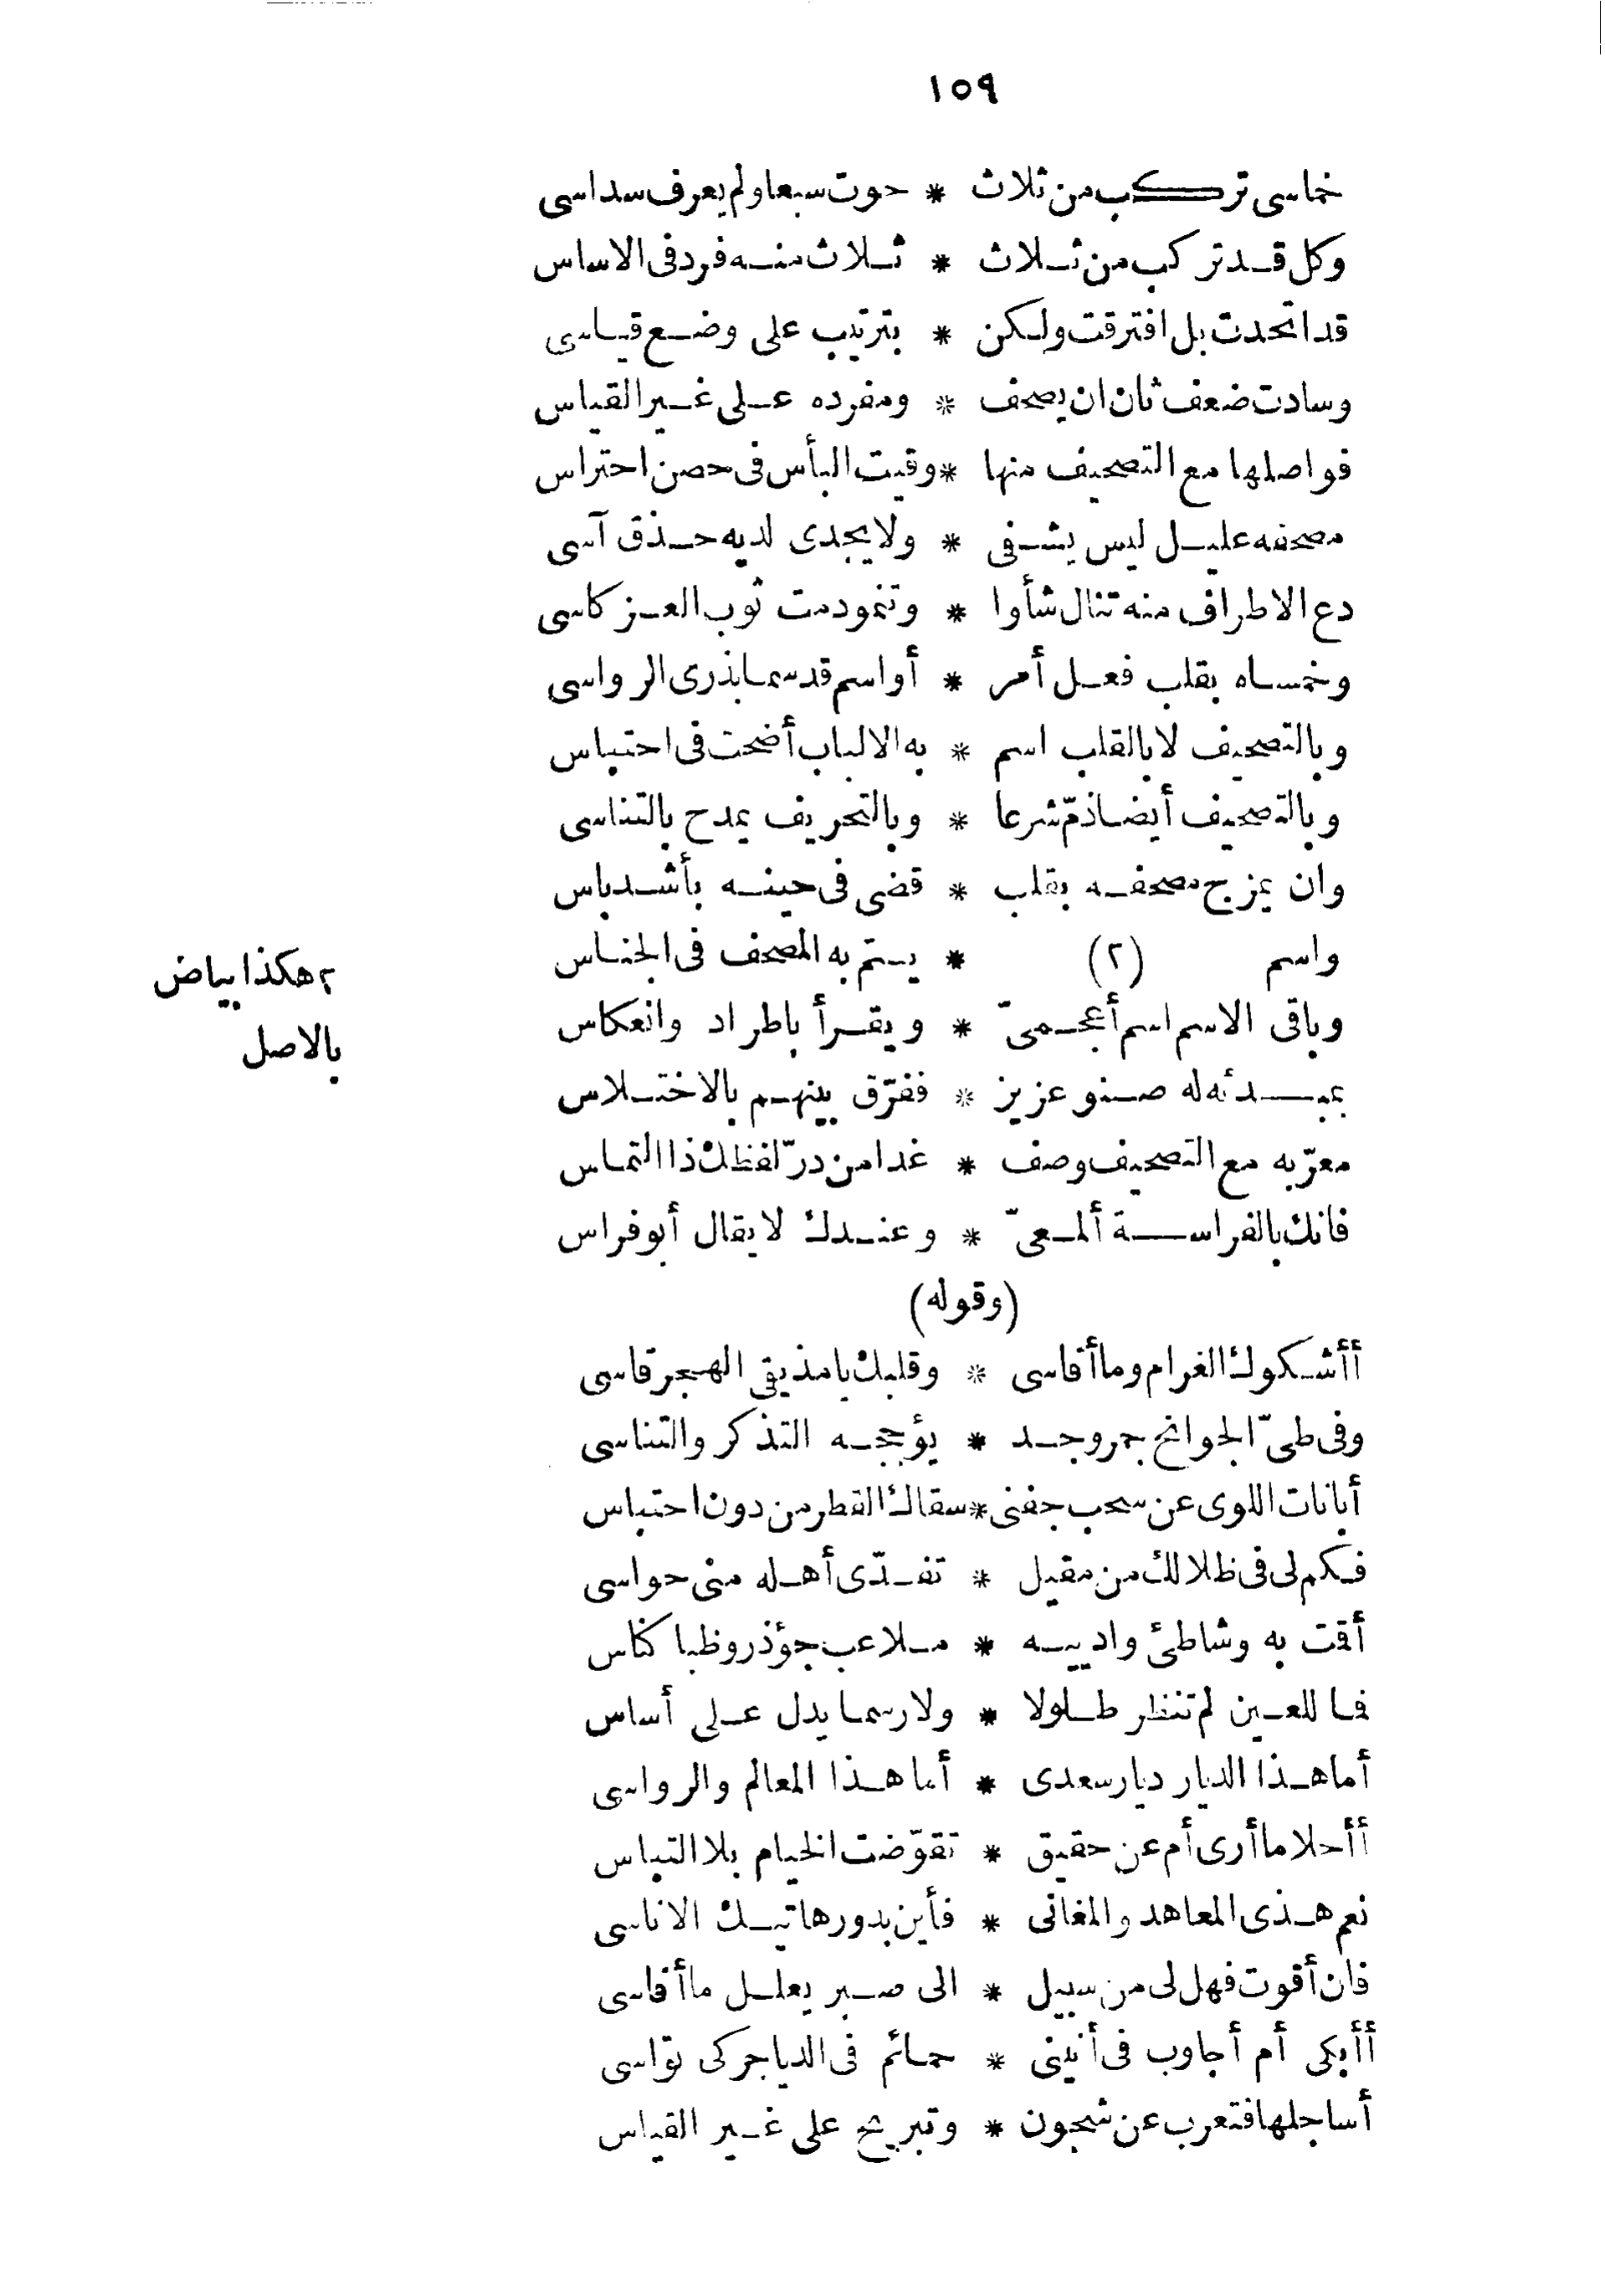 ١٥٩
خماسى تركب من ثلاث * حوت سبعا ولم يعرف سداسى
وكل قد تركب من ثلاث * ثلاث منه فرد فى الاساس
قد اتحدت بل افترقت ولكن * بترتيب على وضع قياسى
وسادت ضعف ثان ان يصحف * ومفرده على غير القياس
فواصلها مع التصحيف منها * وقيت البأس فى حصن احتراس
مصحفه عليل ليس يشفى * ولا يجدى لديه حذق آسى
دع الاطراف منه تنال شأوا * وتغمود مت ثوب العز كاسى
وخمساه بقلب فعل أمر * أو اسم قد سما بذرى الرواسى
وبالتصحيف لا بالقلب اسم * به الالباب أضحت فى احتباس
وبالتصحيف أيضا ذمّ شرعا * وبالتحريف يمدح بالتناسى
وان يمزج مصحفه بقلب * قضى فى حينه بأشد باس
واسم (٢) * يتم به المصحف فى الجناس
٢ هكذا بياض
بالاصل
وباقى الاسم اسم أعجمىّ * ويقرأ باطراد وانعكاس
بمبدئه له صنو عزيز * ففرّق بينهم بالاختلاس
معرّبه مع التصحيف وصف * غدا من درّ لفظك ذا التماس
فانك بالفراسة ألمعىّ * وعندك لا يقال أبو فراس
(وقوله)
أأشكوك الغرام وما أقاسى * وقلبك يا مذيقى الهجر قاسى
وفى طىّ الجوانح جمر وجد * يؤججه التذكر والتناسى
أبانات اللوى عن سحب جفنى * سقاك القطر من دون احتباس
فكم لى فى ظلالك من مقيل * تفدّى أهله منى حواسى
أقت به وشاطئ وادييه * ملاعب جؤذر وظبا كناس
فما للعين لم تنظر طلولا * ولا رسما يدل على أساس
أما هذا الديار ديار سعدى * أما هذا المعالم والرواسى
أأحلا ما أرى أم عن حقيق * تقوّضت الخيام بلا التباس
نعم هذى المعاهد والمغانى * فأين بدور هاتيك الاناسى
فان أقوت فهل لى من سبيل * الى صبر يعلل ما أقاسى
أأبكى أم أجاوب فى أنينى * حمائم فى الدياجر كى تواسى
أساجلها فتعرب عن شجون * وتبريح على غير القياس